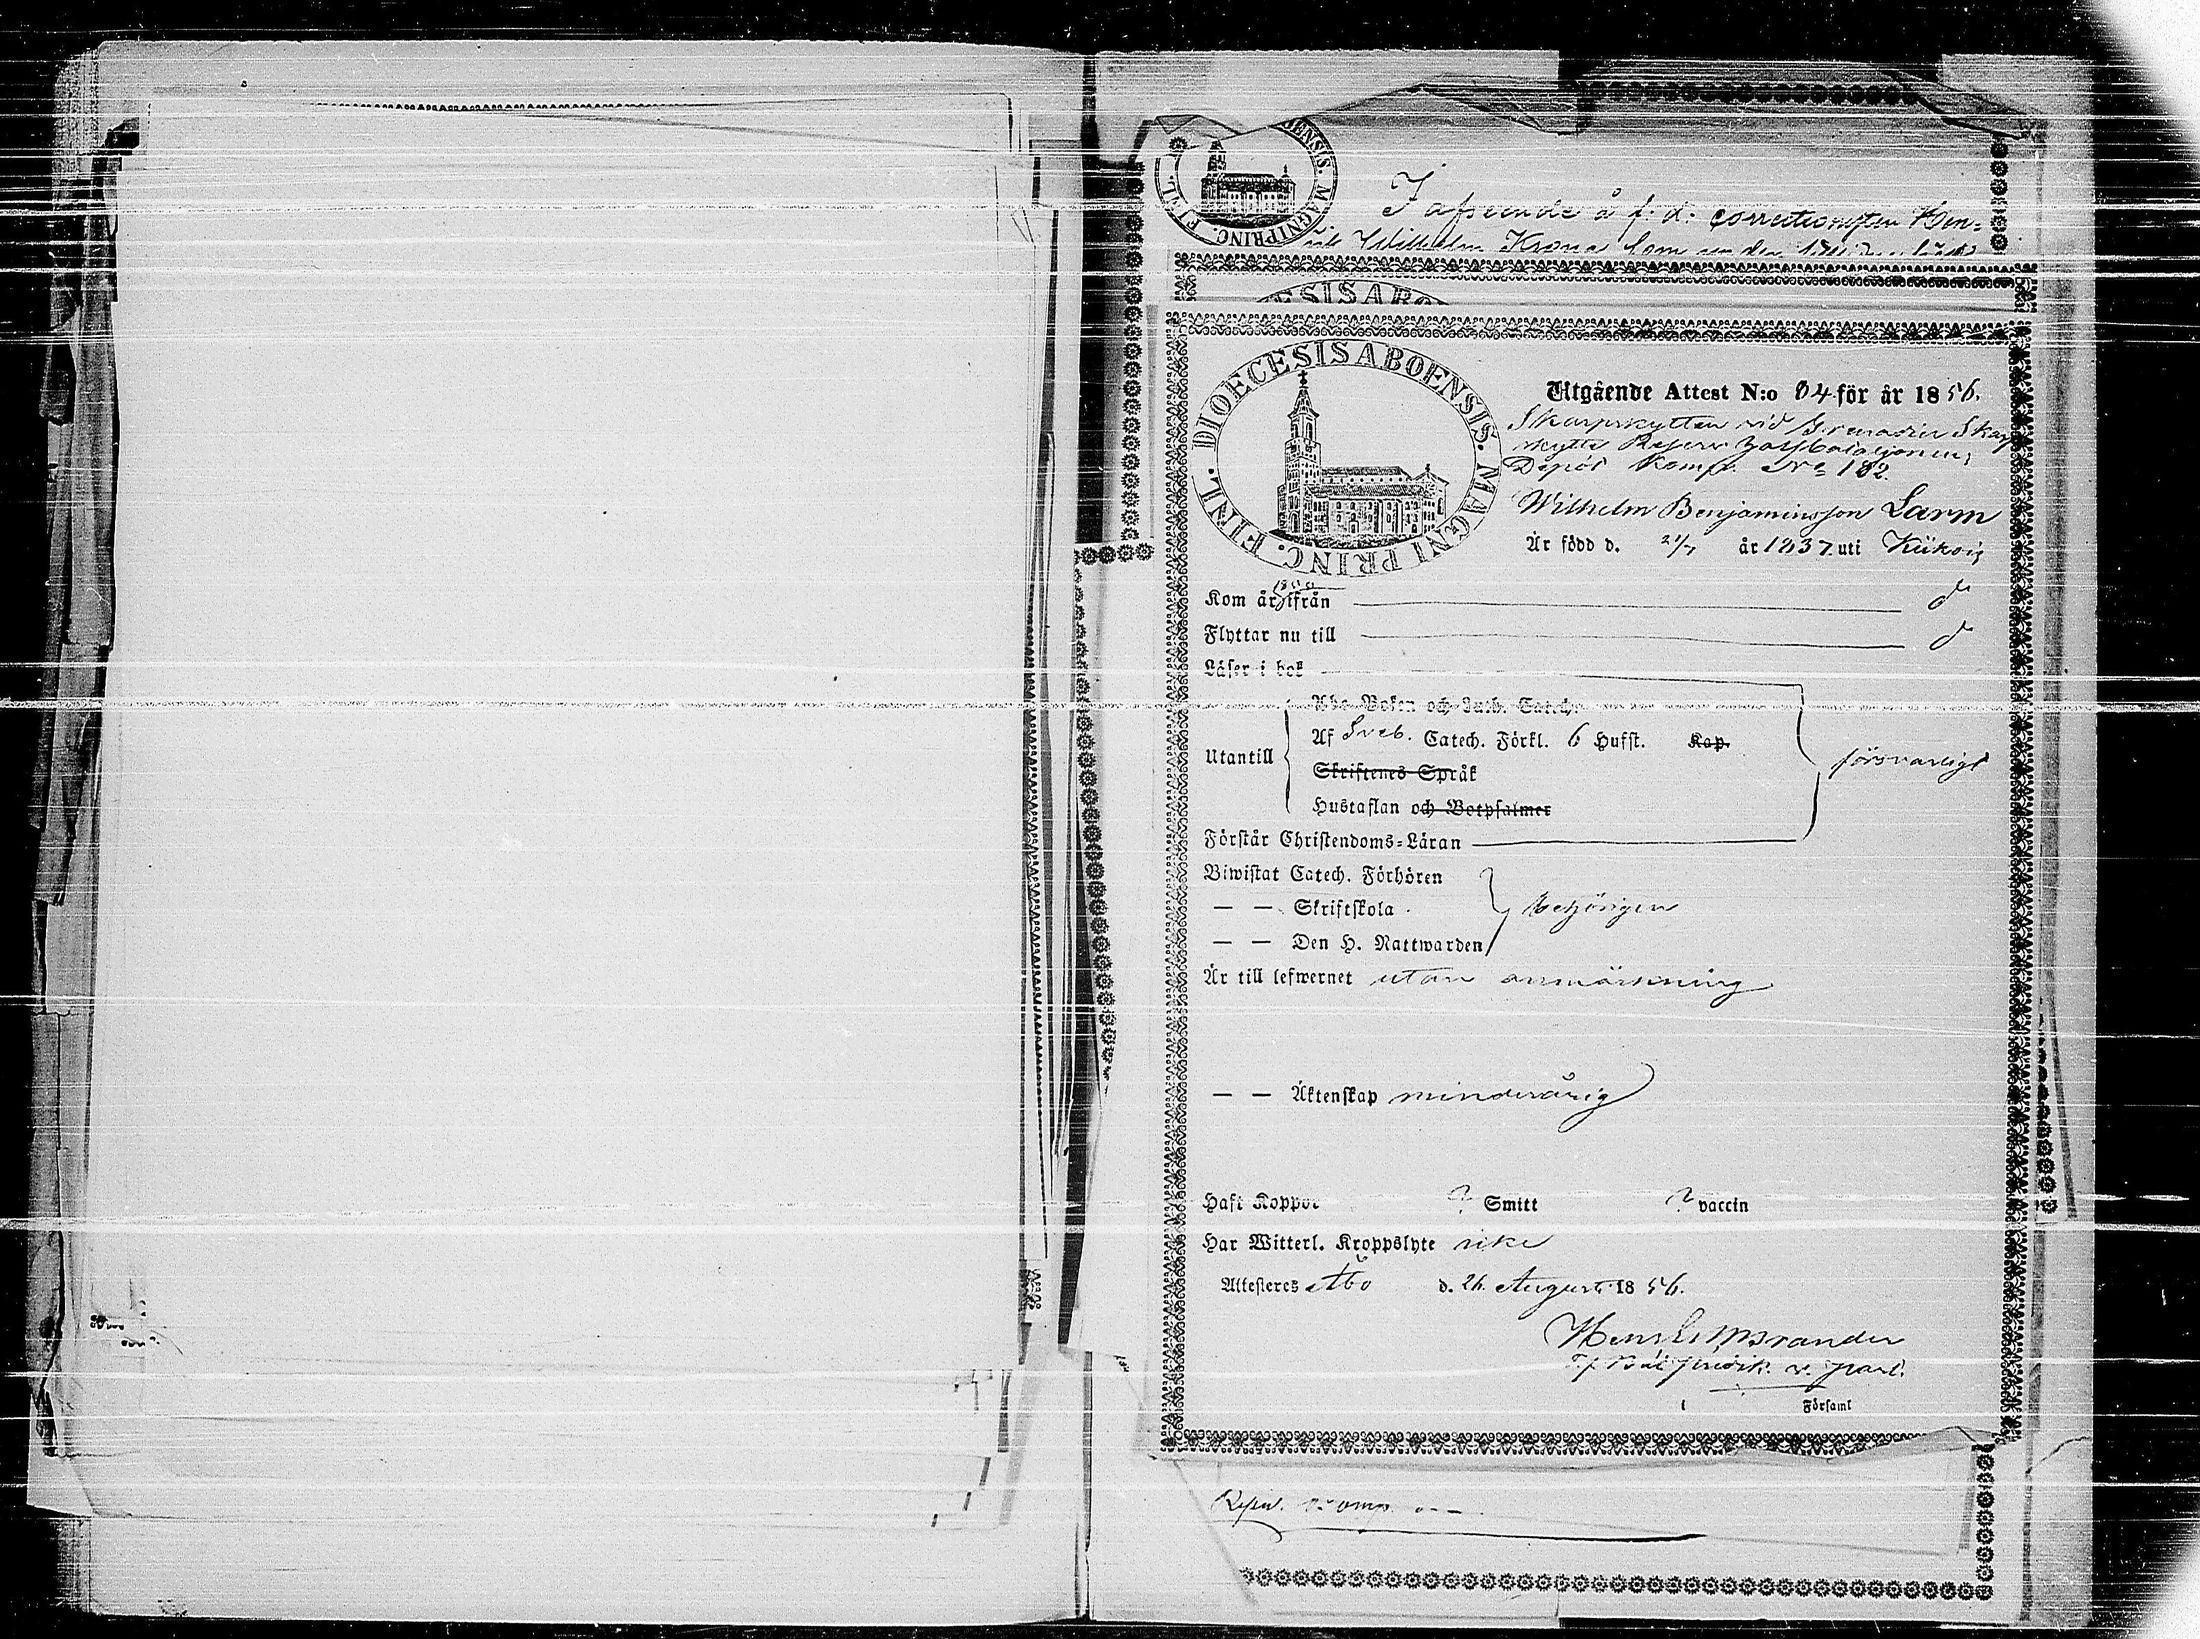 DIOECESIS ABOENSIS. MAGNI PRINC. FINL.
I afseende å f. d. correctionisten Hen-
rik Wilhelm Krona som
DIOECESIS ABOENSIS. MAGNI PRINC. FINL.
Utgående Attest N:o 84 för år 1856.
Skarpskytten vid Grenadier Skarp
skytte Reserv Bataljonen,
Depôt Komp. No 182.
Wilhelm Benjaminsson Larm
Är född d. 21/7 år 1837 uti Kiikois
Kom år ifrån
Flyttar nu till
Läser i bok
Abc-Boken och Luth. Catech.
Utantill
Af Sveb. Catech. Förkl. 6 Hufst. Kap.
försvarligt
Skriftenes Språk
Hustaflan och Botpsalmer
Förstår Christendoms-Läran
Biwistat Catech. Förhören
— — Skriftskola behörigen
— — Den H. Nattwarden
Är till lefwernet utan anmärkning
— — Äktenskap minderårig
Haft Koppor ? Smitt ? vaccin
Har Witterl. Kroppslyte icke
Attesteres Åbo d. 26 August 1856.
v. past.
i Församl